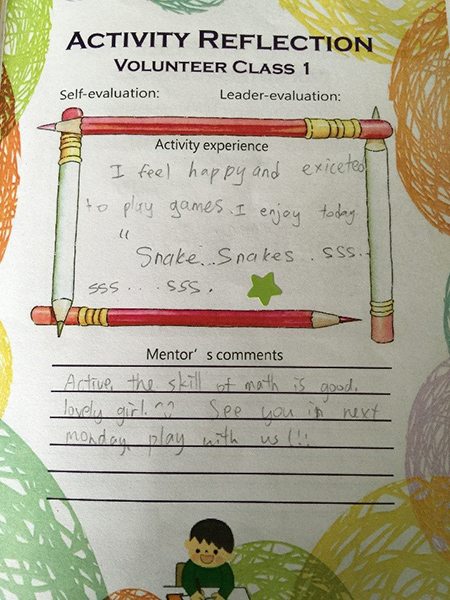 ACTIVITY REFLECTION
VOLUNTEER CLASS 1
Self-evaluation: Leader-evaluation:
Activity experience
I feel happy and exiceted
to play games. I enjoy today
"
Snake...Snakes . sss..
sss . . . sss.
Mentor's comments
Active, the skill of math is good.
lovely girl. ^^ See you in next
monday, play with us (!!